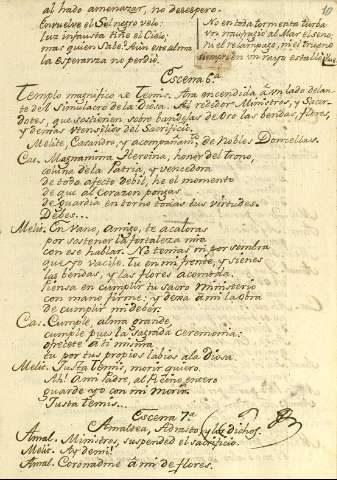 al hado amenazar, no desespero.
Envuelve el Sol negro velo:
luz infausta tiñe el Cielo;
mas quien sabe? Aun este alma
la esperanza no perdió.
No en toda tormenta turba
un naufragio al Mar el seno:
ni el relampago, ni el trueno
siempre en un rayo estalló
10
Escena 6ª
Templo magnifico de Temis. Ara encendida à un lado delan-
te del Simulacro de la Diosa. Al rededor Ministros, y Sacer-
dotes, que sostienen sobre bandejas de Oro las bendas, flores,
y demas utensilios del Sacrificio.
Melite, Casandro, y acompañamᵗᵒ de Nobles Doncellas.
Cas. Magnanima Heroina, honor del trono,
coluna de la Patria, y vencedora
de todo afecto debil, he el momento
de que al corazon pongas
de guardia en torno todas tus virtudes.
Debes...
Melit. En vano, amigo, te acaloras
por sostener la fortaleza mia
con ese hablar. No temas ni por sombra
que yo vacile. Tu en mi frente, y sienes
las bendas, y las flores acomoda.
Piensa en cumplir tu sacro ministerio
con mano firme; y dexa à mi la obra
de cumplir mi deber.
Cas. Cumple, alma grande,
cumple pues la sagrada ceremonia:
ofrecete à ti misma
tu por tus propios labios à la Diosa.
Melit. Justa Temis, morir quiero.
Ah! A mi Padre, al Reino entero
guarde yo con mi morir.
Justa Temis...
Escena 7ª
Amaltea, Adrasto, y los dichos.
Amal. Ministros, suspended el sacrificio.
Melit. Ay de mi!
Amal. Coronadme à mi de flores.